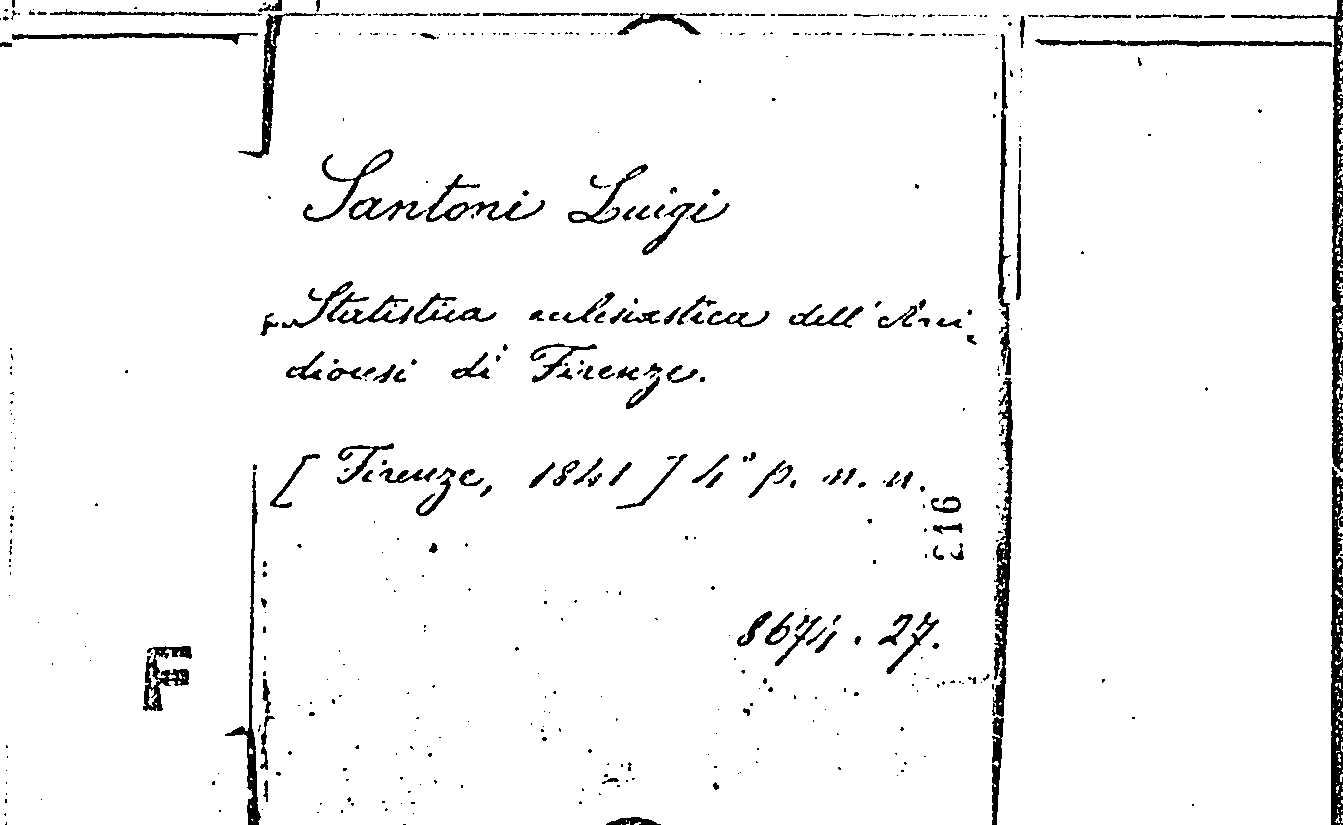 Santoni Luigi
Statistica ecclesiastica dell'Arci-
diocesi di Firenze.
[Firenze, 1841] 4° p. n. n.
216
8674.27.
F